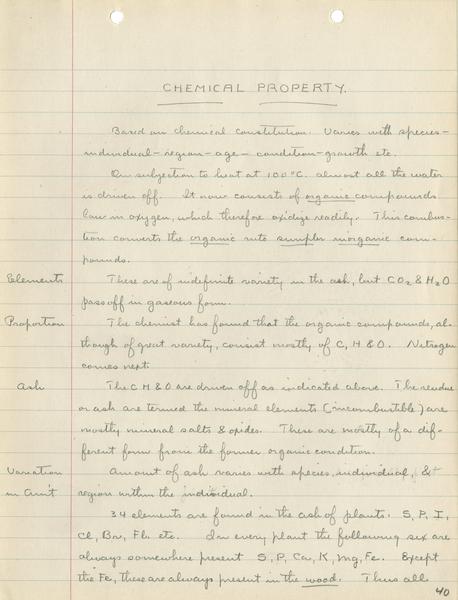 CHEMICAL PROPERTY.
Based on chemical constitution. Varies with species-
individual-region-age-condition-growth etc.
On subjection to heat at 100°C. almost all the water
is driven off. It now consists of organic compounds
low in oxygen, which therefore oxidize readily. This combus-
tion converts the organic into simpler inorganic com-
pounds.
Elements These are of indefinite variety in the ash, but CO2 & H2O
pass off in gaseous form.
Proportion The chemist has found that the organic compounds, al-
though of great variety, consist mostly of C, H & O. Nitrogen
comes next.
Ash The C H & O are driven off as indicated above. The residue
or ash are termed the mineral elements (incombustible) are
mostly mineral salts & oxides. These are mostly of a dif-
ferent form from the former organic condition.
Variation Amount of ash varies with species, individual, &
in Am't region within the individual.
34 elements are found in the ash of plants: S, P, I,
Cl, Br, Fl. etc. In every plant the following six are
always somewhere present S, P, Ca, K, Mg, Fe. Except
the Fe, these are always present in the wood. Thus all
40